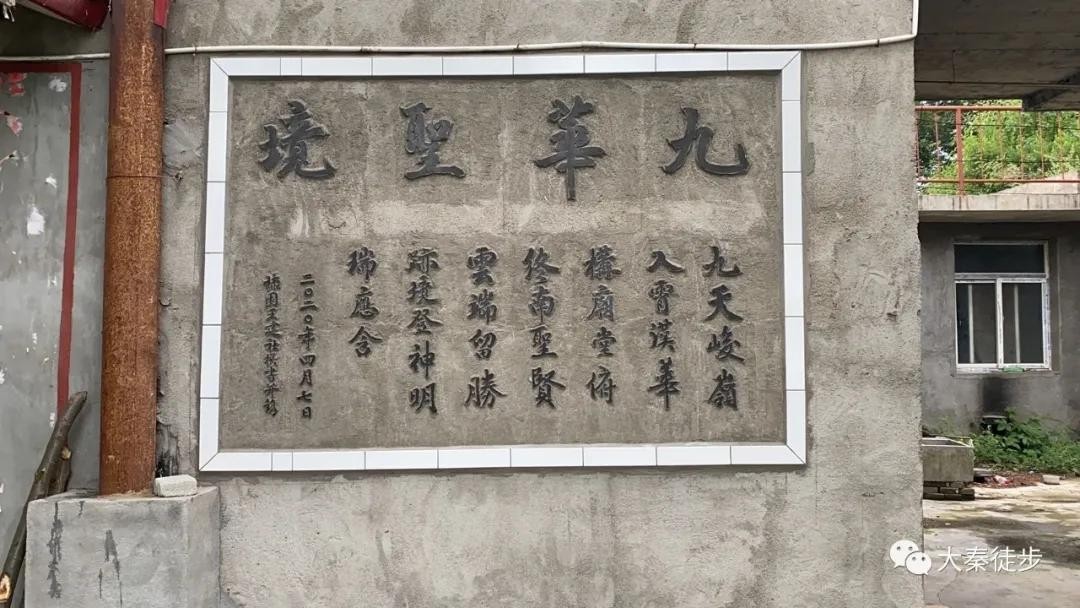 九華聖境
九天峻嶺
入霄漢華
構廟堂俯
終南聖賢
雲端留勝
跡境登神明
瑞應含
二〇二〇年四月七日
大秦徒步